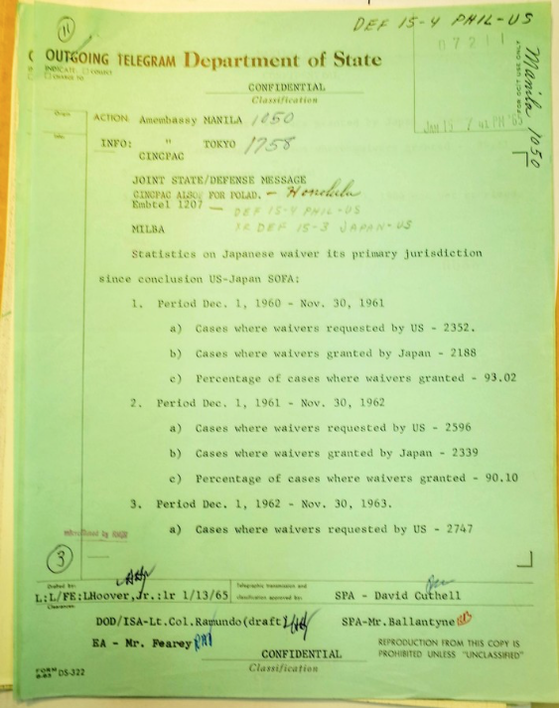 DEF 15-4 PHIL-US
11
OUTGOING TELEGRAM Department of State
INDICATE: COLLECT
CHARGE TO
CONFIDENTIAL
Classification
FOR OCT USE ONLY
Manila 1050
Origin
ACTION: Amembassy MANILA 1050
JAN 15 7 41 PM '65
Info:
INFO: " TOKYO 1758
CINCPAC
JOINT STATE/DEFENSE MESSAGE
CINCPAC ALSO FOR POLAD. - Honolulu
Embtel 1207 — DEF 15-4 PHIL-US
XR DEF 15-3 JAPAN-US
MILBA
Statistics on Japanese waiver its primary jurisdiction
since conclusion US-Japan SOFA:
1. Period Dec. 1, 1960 - Nov. 30, 1961
a) Cases where waivers requested by US - 2352.
b) Cases where waivers granted by Japan - 2188
c) Percentage of cases where waivers granted - 93.02
2. Period Dec. 1, 1961 - Nov. 30, 1962
a) Cases where waivers requested by US - 2596
b) Cases where waivers granted by Japan - 2339
c) Percentage of cases where waivers granted - 90.10
3. Period Dec. 1, 1962 - Nov. 30, 1963.
a) Cases where waivers requested by US - 2747
3
Drafted by:
L:L/FE:LHoover,Jr.:lr 1/13/65
Telegraphic transmission and
classification approved by:
SPA - David Cuthell
Clearances:
DOD/ISA-Lt.Col.Ramundo(draft)
SPA-Mr.Ballantyne
EA - Mr. Fearey
CONFIDENTIAL
Classification
REPRODUCTION FROM THIS COPY IS
PROHIBITED UNLESS "UNCLASSIFIED"
FORM
8-63 DS-322